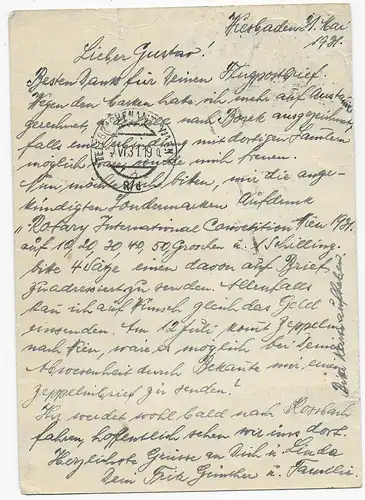 Wiesbaden 31. Mai
1931.
Lieber Gustav!
Besten Dank für Deinen Flugpostbrief.
Wegen den Marken habe ich mehr auf Austausch
gerechnet, nach Bozek ausgezeichnet,
falls eine mit dortigen Santern
möglich wäre, würde mich freuen.
Nun möchte ich biten, mir die ange-
kündigten Sondermarken Aufdruk
"Rotary International Convention Wien 1931.
auf 10, 20, 30, 40, 50 Groschen u. 1 Schilling.
bite 4 Sätze einen davon auf Brief
zuadressiert zu senden. Allenfalls
kan ich auf Wunsch gleich das Geld
einsenden. Am 12 Juli komt Zeppelin
nach Wien, wäre es möglich bei Deiner
Abwesenheit durch Bekante mir einen
Zeppelinbrief zu senden!
Ihr werdet wohl bald nach Rossbach
fahren, hoffentlich sehen wir uns dort.
Herzlichste Grüsse an Dich u. Linda
Dein Fritz Günther u. Familie
VI 31. 19